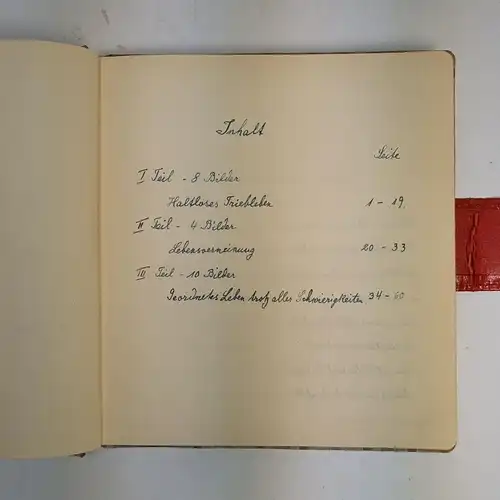 Inhalt
Seite
I Teil - 8 Bilder
Haltloses Triebleben 1 - 19
II Teil - 4 Bilder
Lebensverneinung 20 - 33
III Teil - 10 Bilder
Geordnetes Leben trotz aller Schwierigkeiten 34 - 60